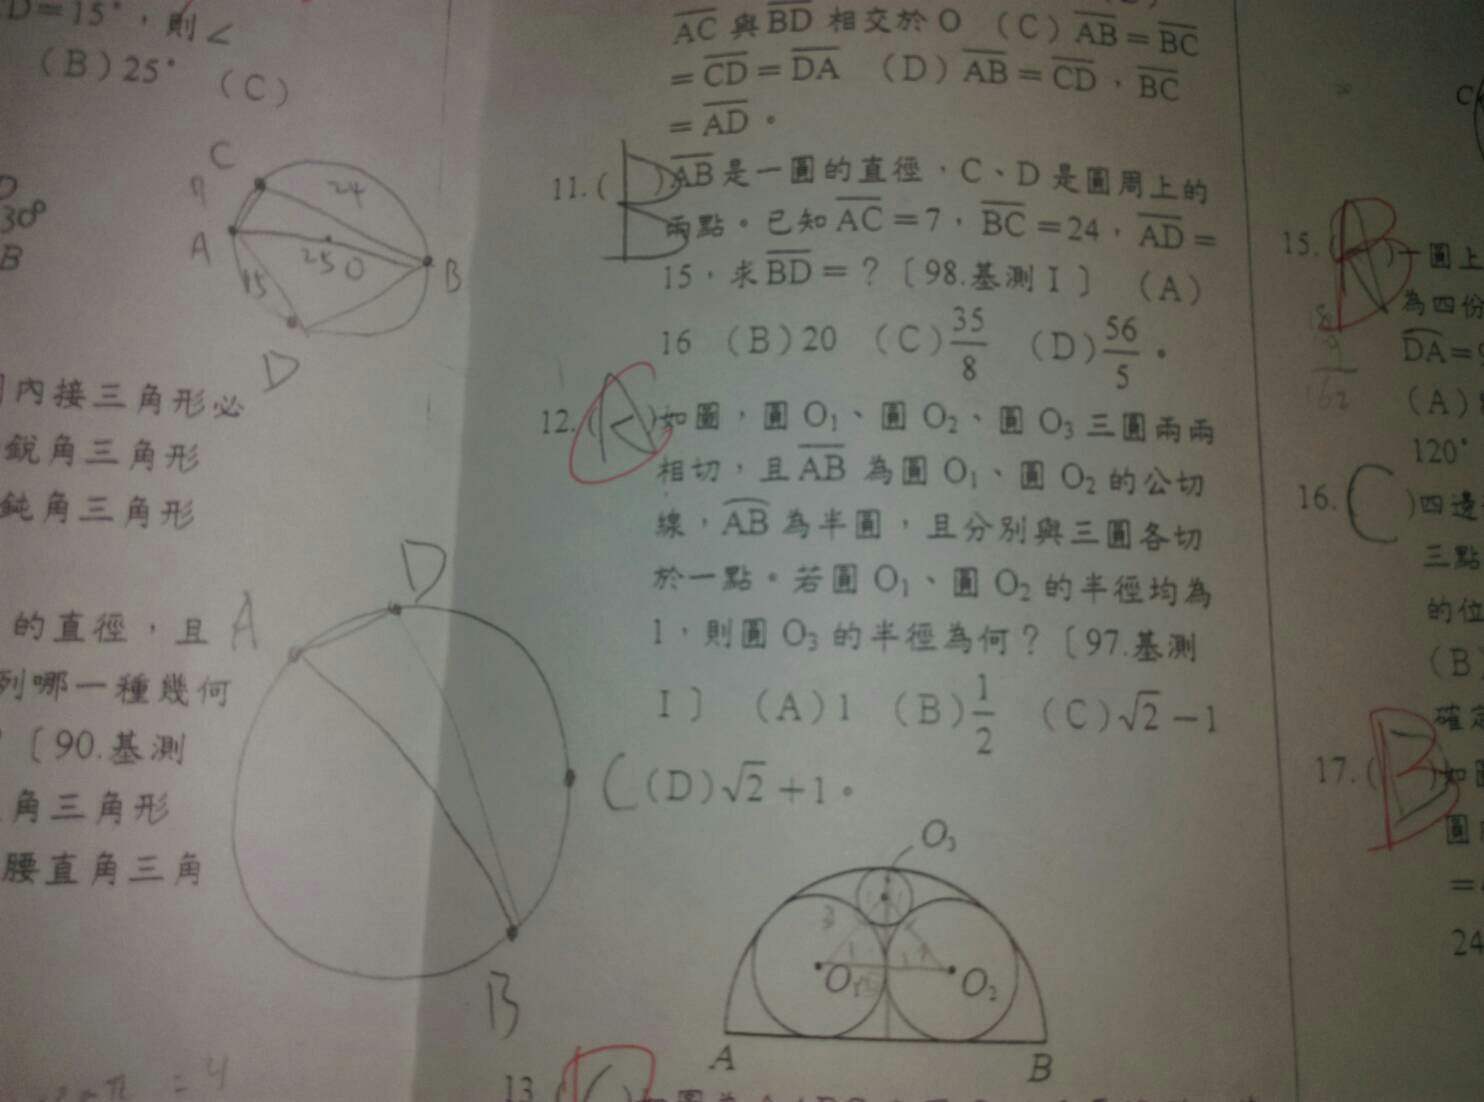 D=15°，則∠
(B)25° (C)
C
7
24
A
25 O
B
15
D
30°
B
內接三角形必
銳角三角形
鈍角三角形
的直徑，且
列哪一種幾何
〔90.基測
角三角形
腰直角三角
A
D
C
B
π = 4
AC 與 BD 相交於 O (C) AB = BC
= CD = DA (D) AB = CD，BC
= AD。
11.( B )AB 是一圓的直徑，C、D 是圓周上的
兩點。已知 AC = 7，BC = 24，AD =
15，求 BD = ？〔98.基測 I〕 (A)
16 (B)20 (C)35/8 (D)56/5。
12.( )如圖，圓 O1、圓 O2、圓 O3 三圓兩兩
相切，且 AB 為圓 O1、圓 O2 的公切
線，AB 為半圓，且分別與三圓各切
於一點。若圓 O1、圓 O2 的半徑均為
1，則圓 O3 的半徑為何？〔97.基測
I〕 (A)1 (B)1/2 (C)√2 −1
(D)√2 +1。
O3
O1
O2
A
B
13.(
C
15.( )一圓上
為四份
DA =
(A)
120°
16.( C )四邊
三點
的位
(B)
確定
17.( B )如圖
圓
=
24